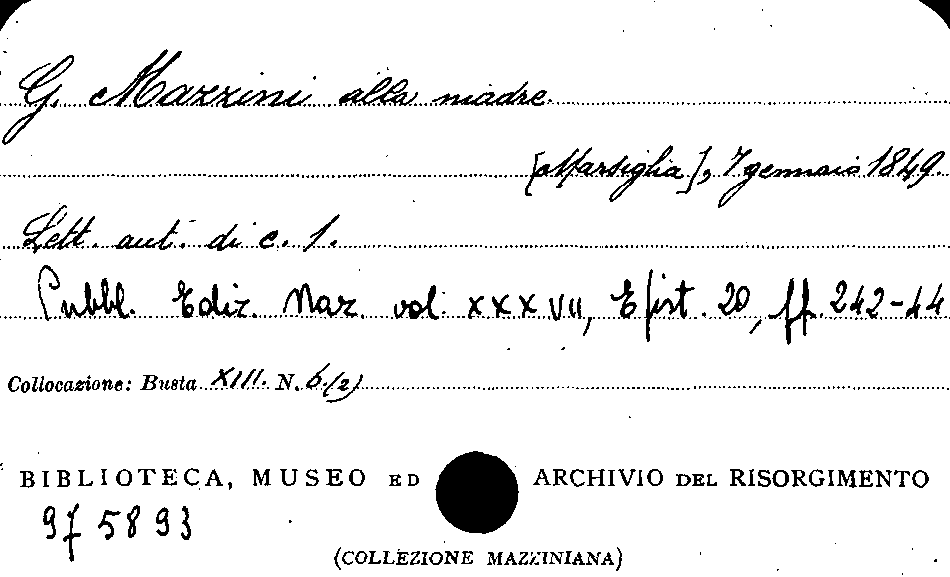 G. Mazzini alla madre.
[Marsiglia], 7 gennaio 1849.
Lett. aut. di c. 1.
Pubbl. Ediz. Naz. vol. XXXVII, Epist. 20, pp. 242-44
Collocazione: Busta XIII. N. 6.(2)
BIBLIOTECA, MUSEO ED ARCHIVIO DEL RISORGIMENTO
975893
(COLLEZIONE MAZZINIANA)